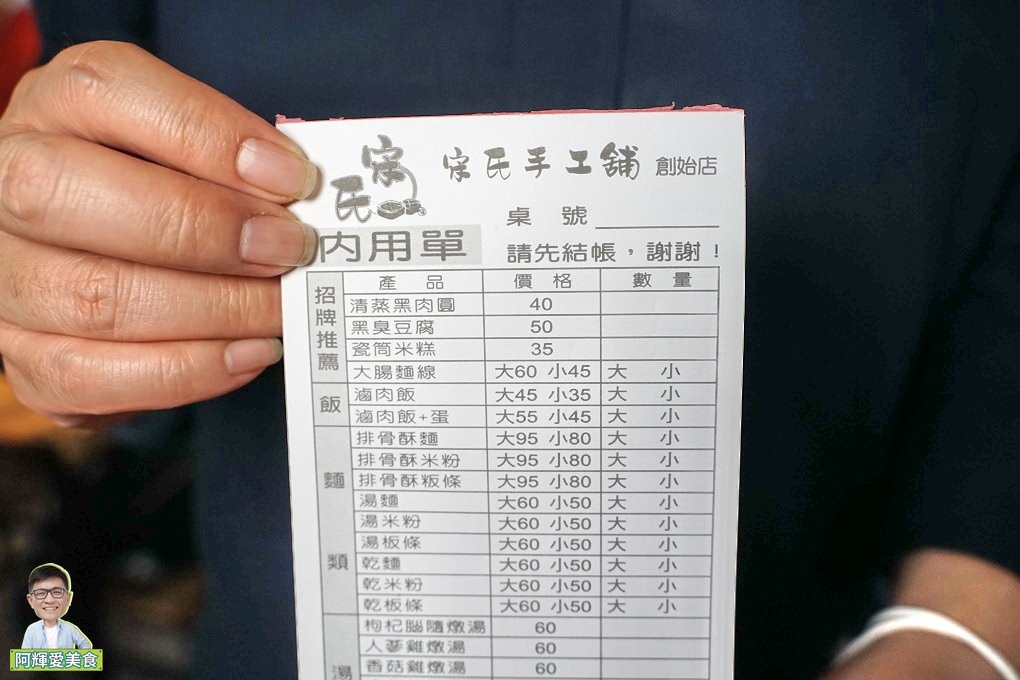 宋氏
宋氏手工舖 創始店
桌號
內用單 請先結帳，謝謝！
產品 價格 數量
招牌推薦
清蒸黑肉圓 40
黑臭豆腐 50
瓷筒米糕 35
大腸麵線 大60 小45 大 小
飯
滷肉飯 大45 小35 大 小
滷肉飯+蛋 大55 小45 大 小
麵類
排骨酥麵 大95 小80 大 小
排骨酥米粉 大95 小80 大 小
排骨酥粄條 大95 小80 大 小
湯麵 大60 小50 大 小
湯米粉 大60 小50 大 小
湯板條 大60 小50 大 小
乾麵 大60 小50 大 小
乾米粉 大60 小50 大 小
乾板條 大60 小50 大 小
湯
枸杞腦隨燉湯 60
人蔘雞燉湯 60
香菇雞燉湯 60
阿輝愛美食